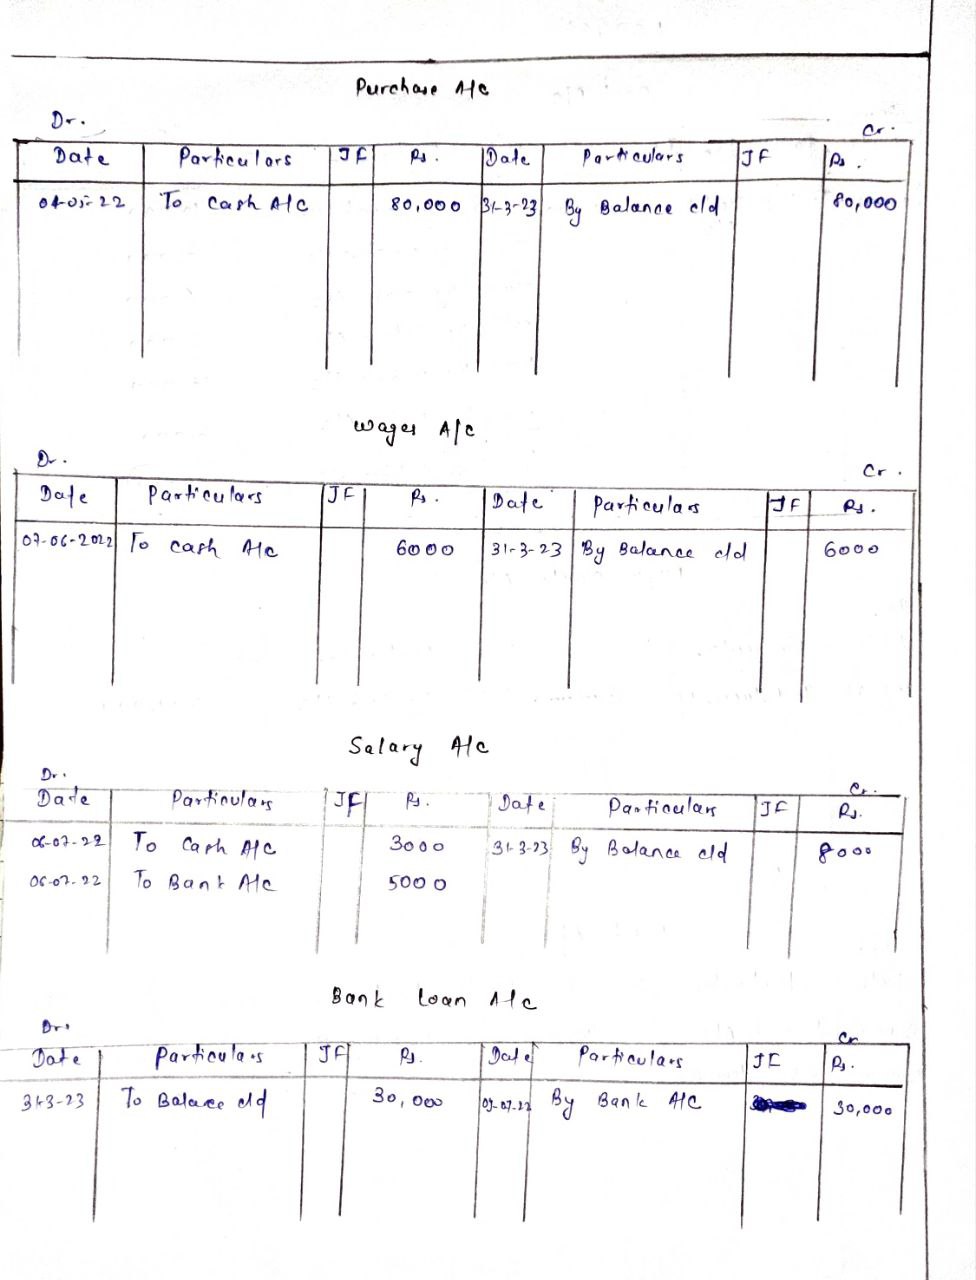 Purchase A/c
Dr. Cr.
Date Particulars JF Rs. Date Particulars JF Rs.
To Cash A/c 80,000 31-3-23 By Balance c/d 80,000
Wages A/c
Dr. Cr.
Date Particulars JF Rs. Date Particulars JF Rs.
07-06-2022 To cash A/c 6000 31-3-23 By Balance c/d 6000
Salary A/c
Dr. Cr.
Date Particulars JF Rs. Date Particulars JF Rs.
06-07-22 To Cash A/c 3000 31-3-23 By Balance c/d 8000
06-07-22 To Bank A/c 5000
Bank loan A/c
Dr. Cr
Date Particulars JF Rs. Date Particulars JF Rs.
31-3-23 To Balace c/d 30,000 By Bank A/c 30,000